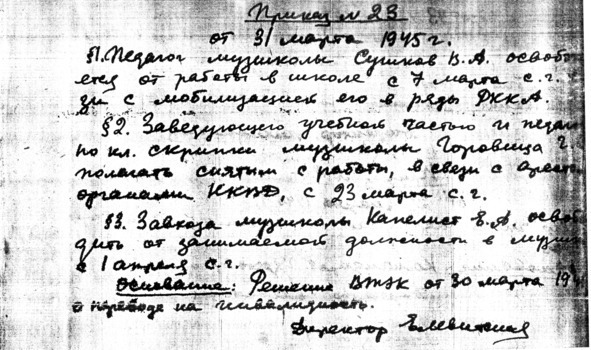 Приказ № 23
от 31 марта 1945 г.
§1. Педагог музшколы Сушков В.А. освобо
ется от работы в школе с 7 марта с.г.
зи с мобилизацией его в ряды РККА.
§2. Заведующего учебной частью и педаг
по кл. скрипки музшколы Горовица Г.
полагать снятым с работы, в связи с аресто
органами НКВД, с 23 марта с.г.
§3. Завхоза музшколы Капелист Е.А. освоб
дить от занимаемой должности в музшк
с 1 апреля с.г.
Основание: Решение ВТЭК от 30 марта 194
о переводе на инвалидность.
Директор